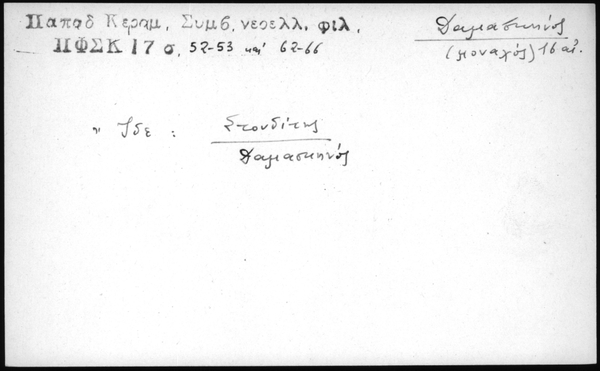 Παπαδ Κεραμ. Συμβ. νεοελλ. φιλ.
ΠΦΣΚ 17 σ. 52-53 καί 62-66
Δαμασκηνός
(μοναχός) 16 αἰ.
" Ἴδε : Στουδίτης
Δαμασκηνός